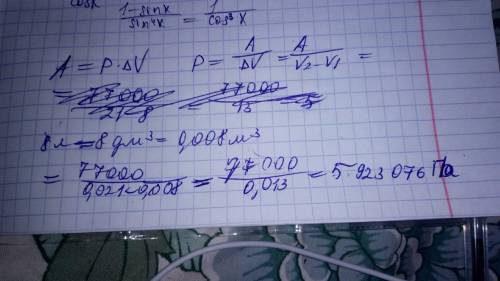 cosx (1-sinx)/(sin⁴x) = 1/(cos³x)
A = P·ΔV P = A/ΔV = A/(V₂-V₁) =
= 77000/(21-8) = 77000/13
8л = 8дм³ = 0,008м³
= 77000/(0,021-0,008) = 77000/0,013 = 5.923076 Па